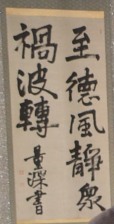 至德風靜眾
禍波轉
量深書